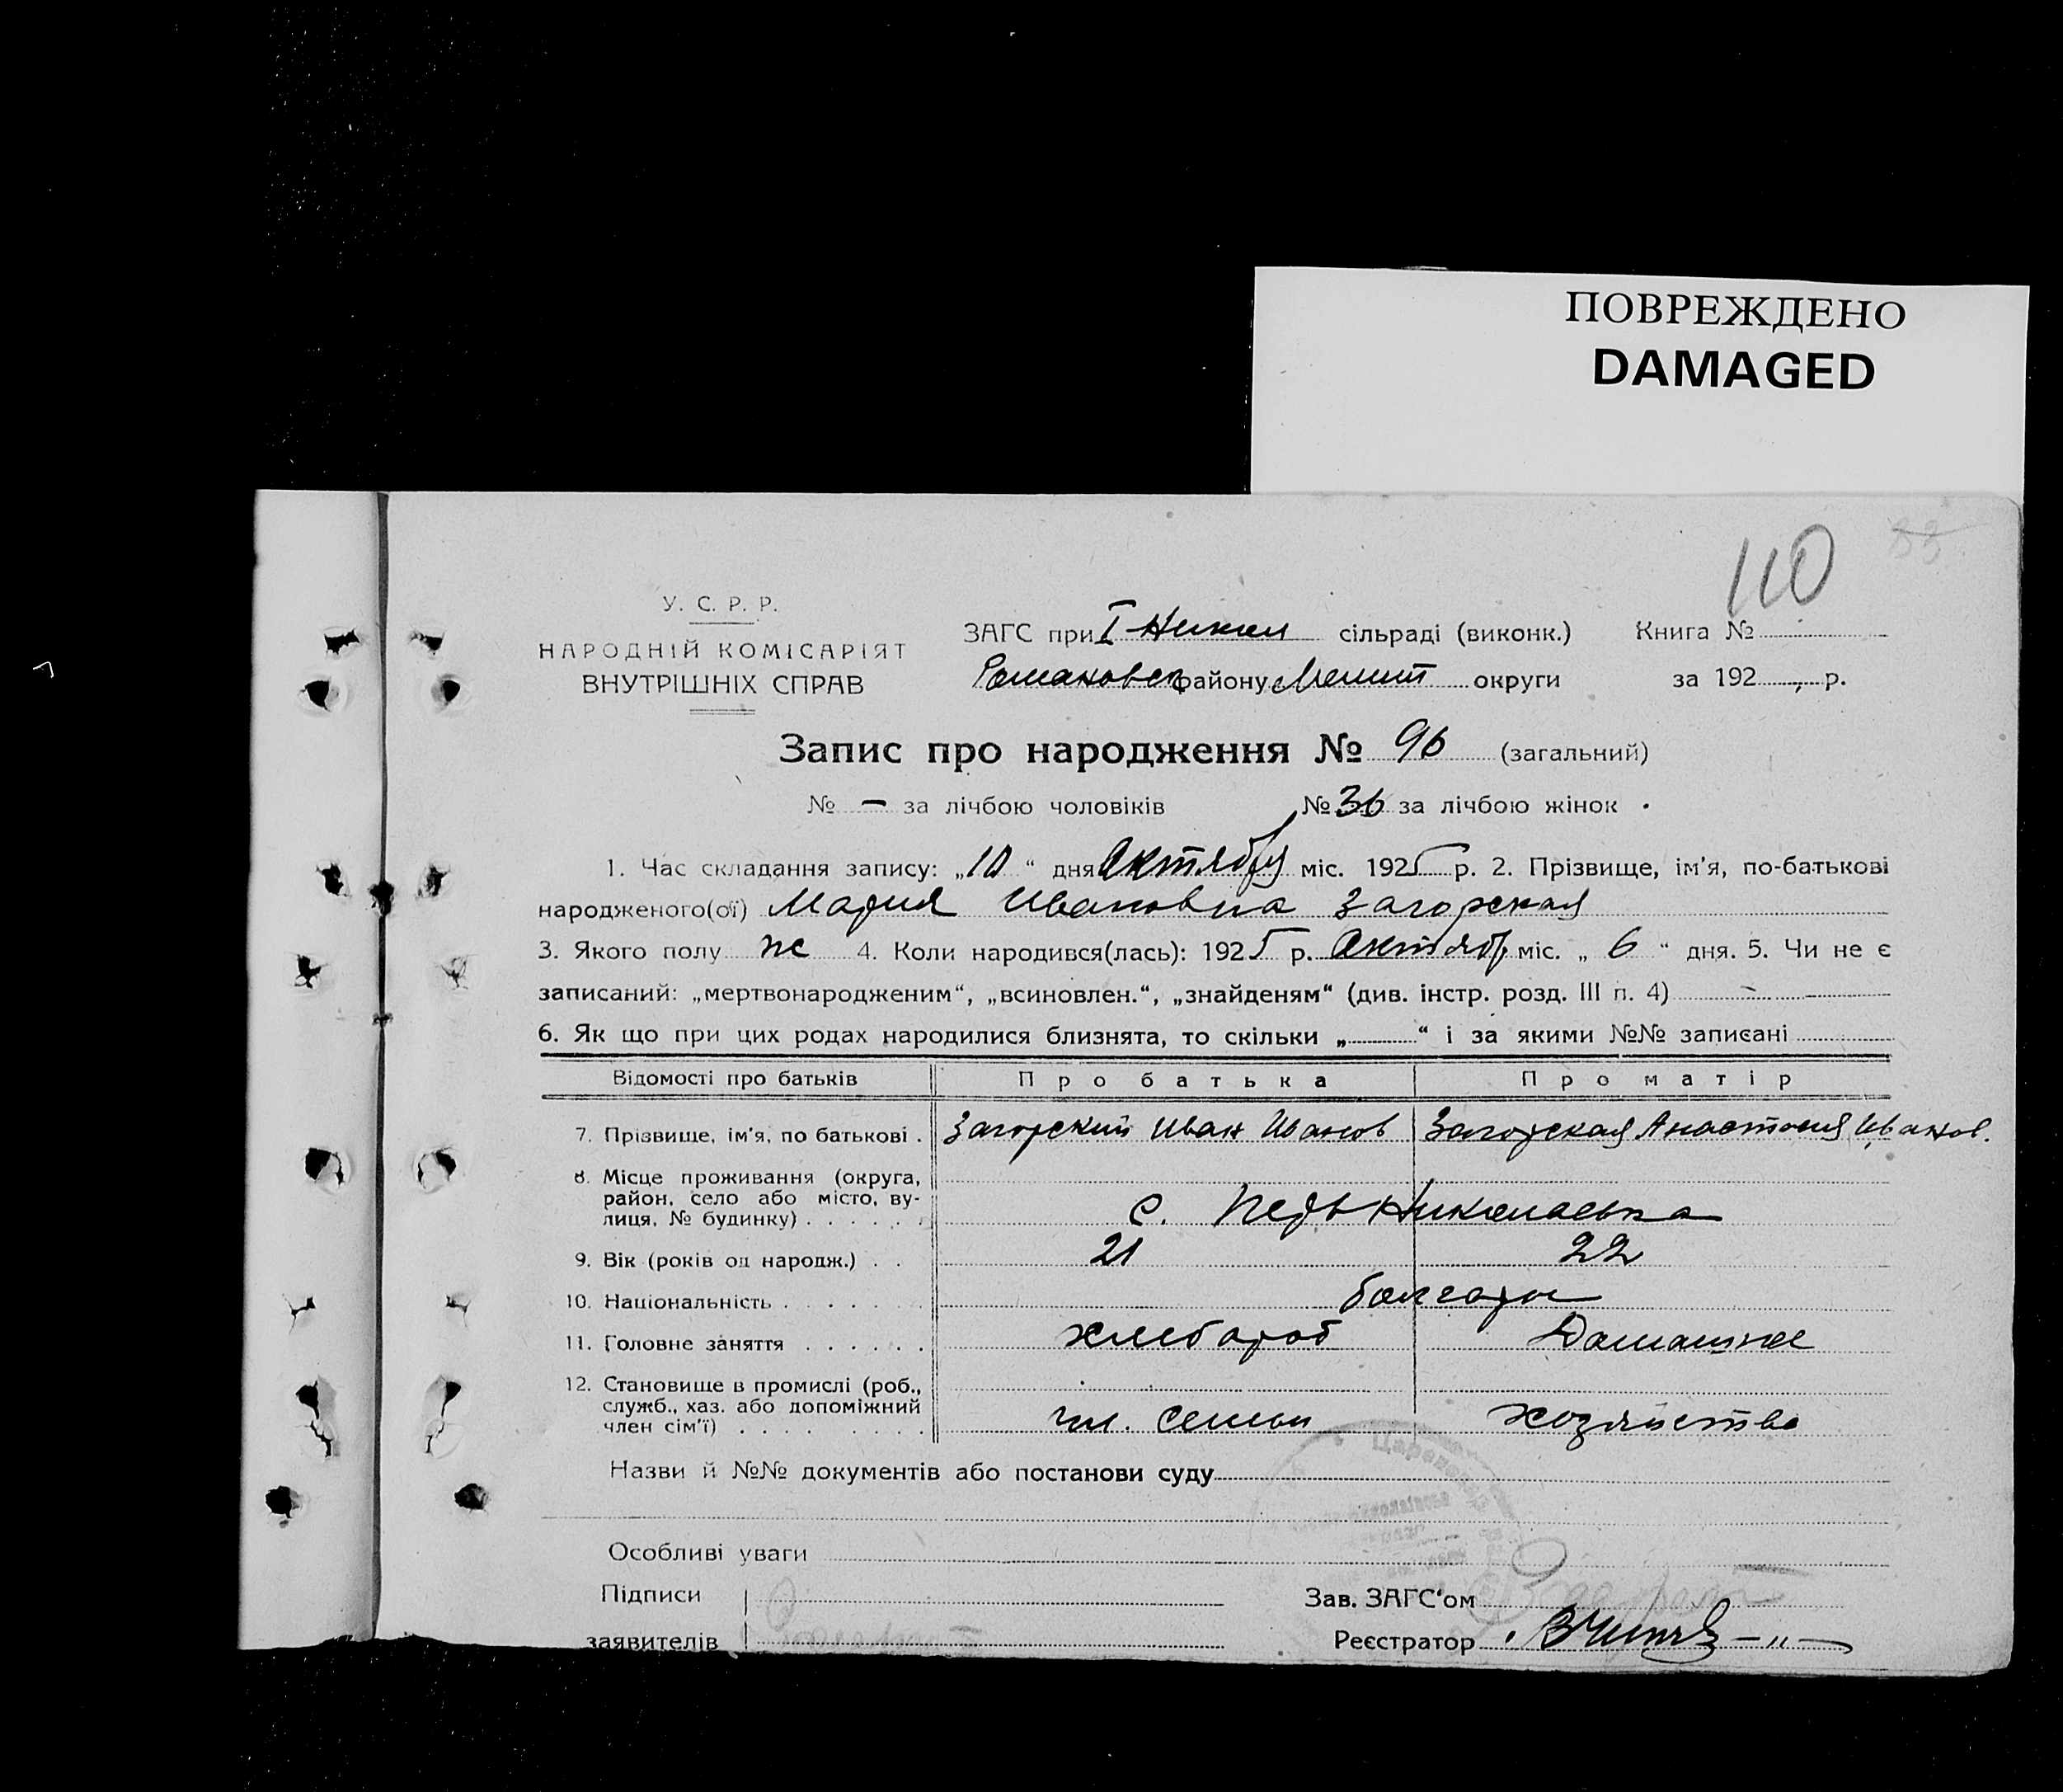 ПОВРЕЖДЕНО
DAMAGED
110
У. С. Р. Р.
НАРОДНІЙ КОМІСАРІЯТ
ВНУТРІШНІХ СПРАВ
ЗАГС при I Никол сільраді (виконк.) Книга №
Романовск району Мелит округи за 192 р.
Запис про народження № 96 (загальний)
№ — за лічбою чоловіків № 36 за лічбою жінок
1. Час складання запису: „10“ дня Октября міс. 1925 р. 2. Прізвище, ім'я, по-батькові
народженого(ої) Мария Ивановна Загорская
3. Якого полу ж 4. Коли народився(лась): 1925 р. Октябр міс. „ 6 “ дня. 5. Чи не є
записаний: „мертвонародженим“, „всиновлен.“, „знайденям“ (див. інстр. розд. III п. 4) –
6. Як що при цих родах народилися близнята, то скільки „ “ і за якими №№ записані
Відомості про батьків Про батька Про матір
7. Прізвище, ім'я, по батькові . Загорский Иван Иванов Загорская Анастасия Иванов.
8. Місце проживання (округа,
район, село або місто, ву-
лиця, № будинку) . . . . . с. Перв Николаевка
9. Вік (років од народж.) . . 21 22
10. Національність . . . . . болгары
11. Головне заняття . . . . . . хлебороб Домашнее
12. Становище в промислі (роб.,
служб., хаз. або допоміжний
член сім'ї) . . . . . . . . . чл. семьи хозяйство
Назви й №№ документів або постанови суду
Особливі уваги
Підписи
заявителів
Зав. ЗАГС'ом
Реєстратор